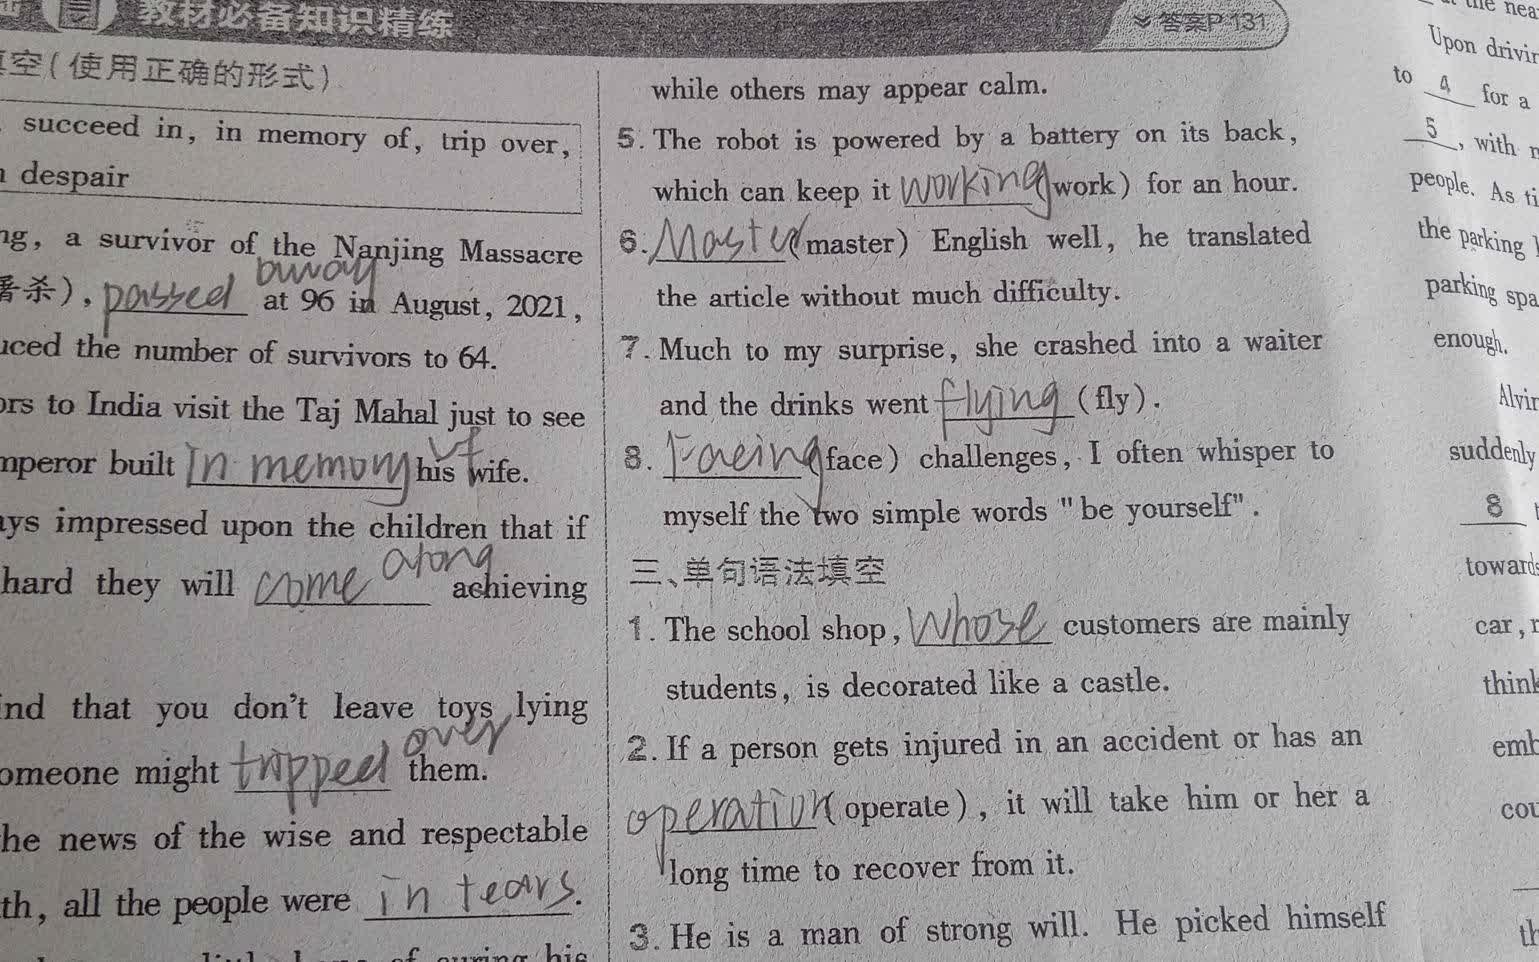 教材必备知识精练
答案P 131
空(使用正确的形式)
succeed in, in memory of, trip over,
despair
ng, a survivor of the Nanjing Massacre
away
杀), passed at 96 in August, 2021,
uced the number of survivors to 64.
ors to India visit the Taj Mahal just to see
of
mperor built In memory his wife.
ays impressed upon the children that if
along
hard they will come achieving
ind that you don't leave toys lying
over
omeone might tripped them.
he news of the wise and respectable
th, all the people were in tears.
while others may appear calm.
5. The robot is powered by a battery on its back,
which can keep it working (work) for an hour.
6. Masted (master) English well, he translated
the article without much difficulty.
7. Much to my surprise, she crashed into a waiter
and the drinks went flying (fly).
8. Facing (face) challenges, I often whisper to
myself the two simple words "be yourself".
三、单句语法填空
1. The school shop, whose customers are mainly
students, is decorated like a castle.
2. If a person gets injured in an accident or has an
operation (operate), it will take him or her a
long time to recover from it.
3. He is a man of strong will. He picked himself
the nea
Upon drivin
to 4 for a
5, with
people. As ti
the parking
parking spa
enough.
Alvin
suddenly
8
towards
car,
think
emb
cou
th